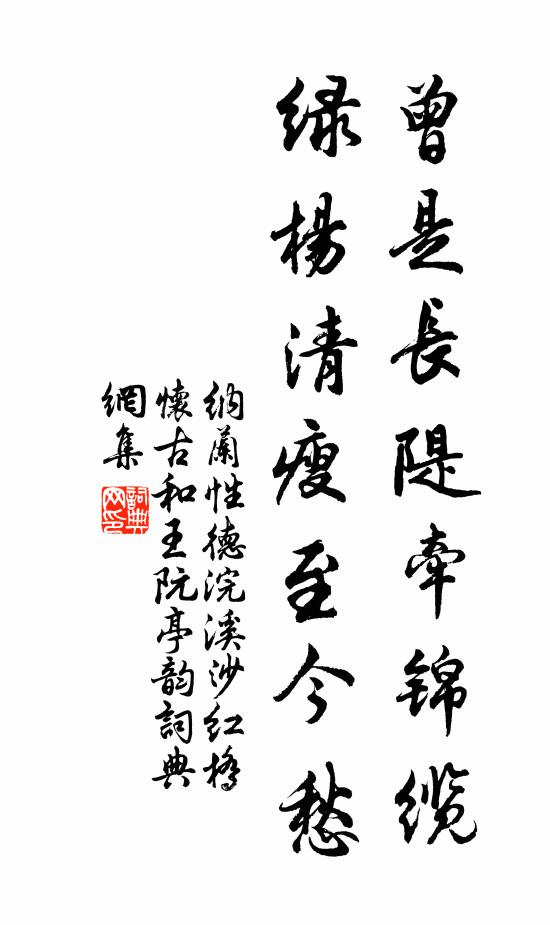 曾是長隄牽錦缆
绿楊清瘦至今愁
纳蘭性德浣溪沙红橋
懷古和王阮亭韵詞典
網集
詞典网印